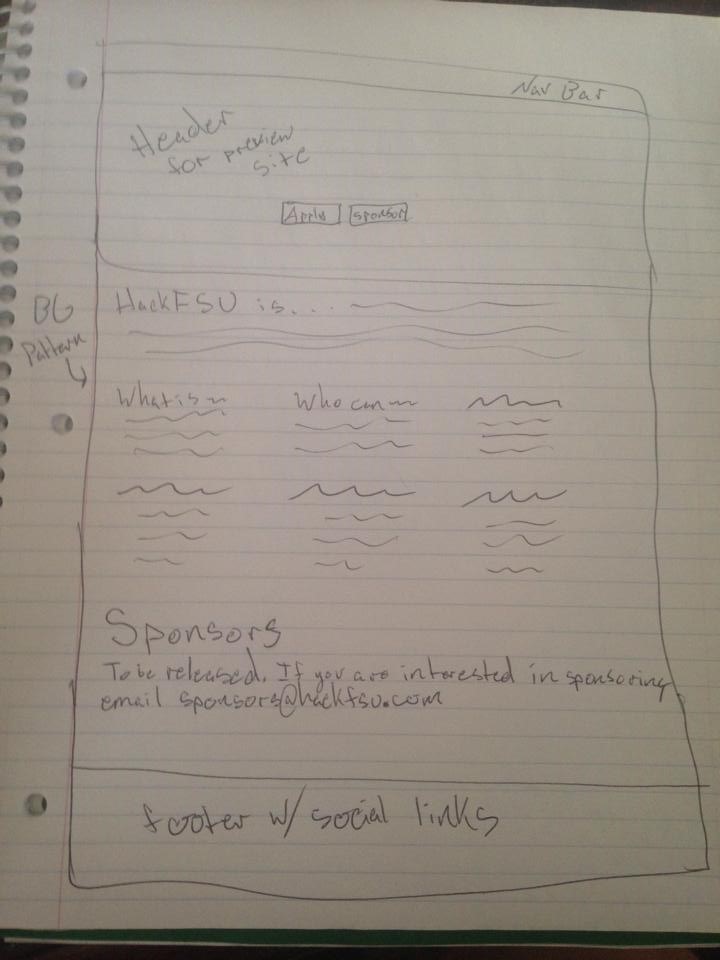 Nav Bar
Header
for preview
site
Apply sponsor
BG
Pattern
HackFSU is...
What is
Who can
Sponsors
To be released. If you are interested in sponsoring
email sponsors@hackfsu.com
footer w/ social links